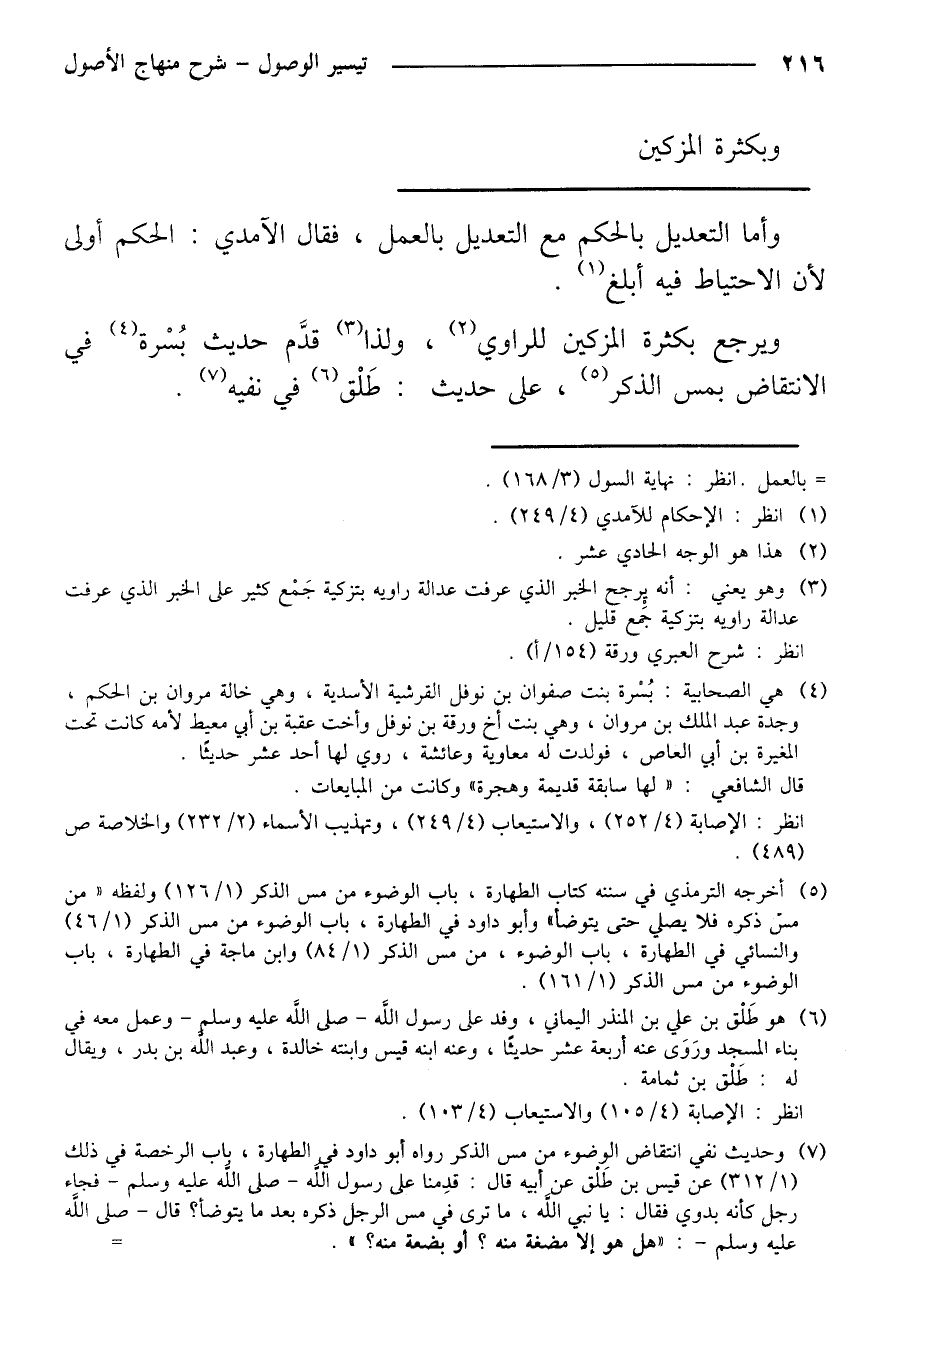 ٢١٦ تيسير الوصول – شرح منهاج الأصول
وبكثرة المزكين
وأما التعديل بالحكم مع التعديل بالعمل ، فقال الآمدي : الحكم أولى
لأن الاحتياط فيه أبلغ(١) .
ويرجع بكثرة المزكين للراوي(٢) ، ولذا(٣) قدَّم حديث بُسْرة(٤) في
الانتقاض بمس الذكر(٥) ، على حديث : طَلْق(٦) في نفيه(٧) .
= بالعمل . انظر : نهاية السول (٣/ ١٦٨) .
(١) انظر : الإحكام للآمدي (٤/ ٢٤٩) .
(٢) هذا هو الوجه الحادي عشر .
(٣) وهو يعني : أنه يرجح الخبر الذي عرفت عدالة راويه بتزكية جَمْع كثير على الخبر الذي عرفت
عدالة راويه بتزكية جَمع قليل .
انظر : شرح العبري ورقة (١٥٤/ أ) .
(٤) هي الصحابية : بُسْرة بنت صفوان بن نوفل القرشية الأسدية ، وهي خالة مروان بن الحكم ،
وجدة عبد الملك بن مروان ، وهي بنت أخ ورقة بن نوفل وأخت عقبة بن أبي معيط لأمه كانت تحت
المغيرة بن أبي العاص ، فولدت له معاوية وعائشة ، روي لها أحد عشر حديثًا .
قال الشافعي : « لها سابقة قديمة وهجرة» وكانت من المبايعات .
انظر : الإصابة (٤/ ٢٥٢) ، والاستيعاب (٤/ ٢٤٩) ، وتهذيب الأسماء (٢/ ٢٣٢) والخلاصة ص
(٤٨٩) .
(٥) أخرجه الترمذي في سننه كتاب الطهارة ، باب الوضوء من مس الذكر (١/ ١٢٦) ولفظه « من
مسّ ذكره فلا يصلي حتى يتوضأ» وأبو داود في الطهارة ، باب الوضوء من مس الذكر (١/ ٤٦)
والنسائي في الطهارة ، باب الوضوء ، من مس الذكر (١/ ٨٤) وابن ماجة في الطهارة ، باب
الوضوء من مس الذكر (١/ ١٦١) .
(٦) هو طَلْق بن علي بن المنذر اليماني ، وفد على رسول اللَّه – صلى اللَّه عليه وسلم – وعمل معه في
بناء المسجد ورَوَى عنه أربعة عشر حديثًا ، وعنه ابنه قيس وابنته خالدة ، وعبد اللَّه بن بدر ، ويقال
له : طَلْق بن ثمامة .
انظر : الإصابة (٤/ ١٠٥) والاستيعاب (٤/ ١٠٣) .
(٧) وحديث نفي انتقاض الوضوء من مس الذكر رواه أبو داود في الطهارة ، باب الرخصة في ذلك
(١/ ٣١٢) عن قيس بن طَلْق عن أبيه قال : قدِمنا على رسول اللَّه – صلى اللَّه عليه وسلم – فجاء
رجل كأنه بدوي فقال : يا نبي اللَّه ، ما ترى في مس الرجل ذكره بعد ما يتوضأ؟ قال – صلى اللَّه
عليه وسلم – : «هل هو إلا مضغة منه ؟ أو بضعة منه؟ » . =